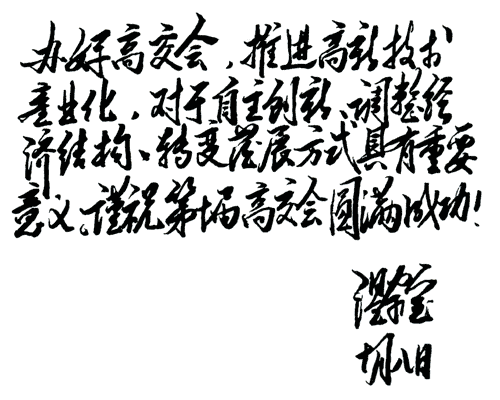 办好高交会，推进高新技术
产业化，对于自主创新、调整经
济结构、转变发展方式具有重要
意义。谨祝第十届高交会圆满成功！
温家宝
十月八日